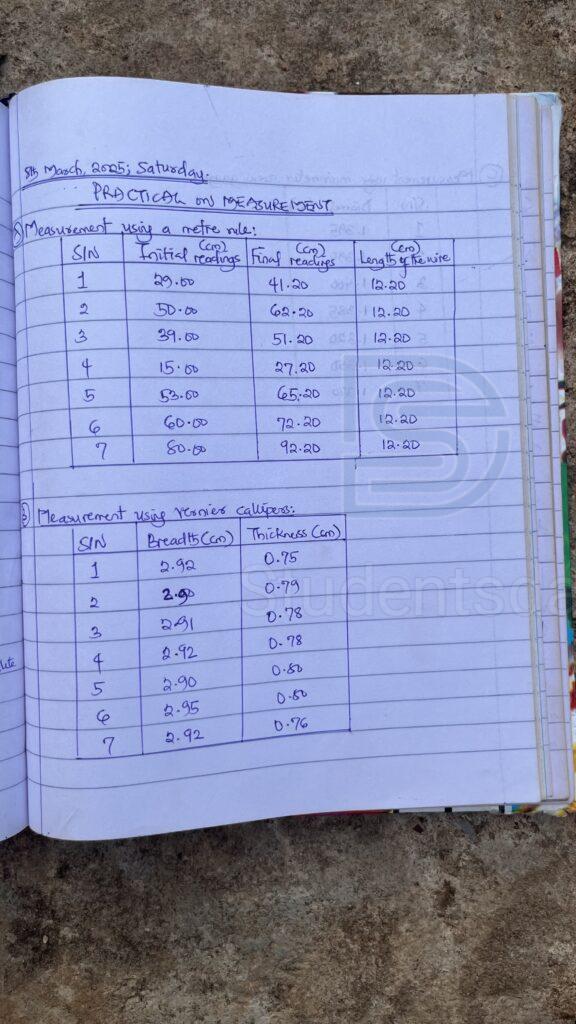 8th March, 2025; Saturday.
PRACTICAL ON MEASUREMENT
Measurement using a metre rule:
S/N Initial readings (cm) Final readings (cm) Length of the wire (cm)
1 29.00 41.20 12.20
2 50.00 62.20 12.20
3 39.00 51.20 12.20
4 15.00 27.20 12.20
5 53.00 65.20 12.20
6 60.00 72.20 12.20
7 80.00 92.20 12.20
Measurement using vernier callipers:
S/N Breadth (cm) Thickness (cm)
1 2.92 0.75
2 2.90 0.79
3 2.91 0.78
4 2.92 0.78
5 2.90 0.80
6 2.95 0.80
7 2.92 0.76